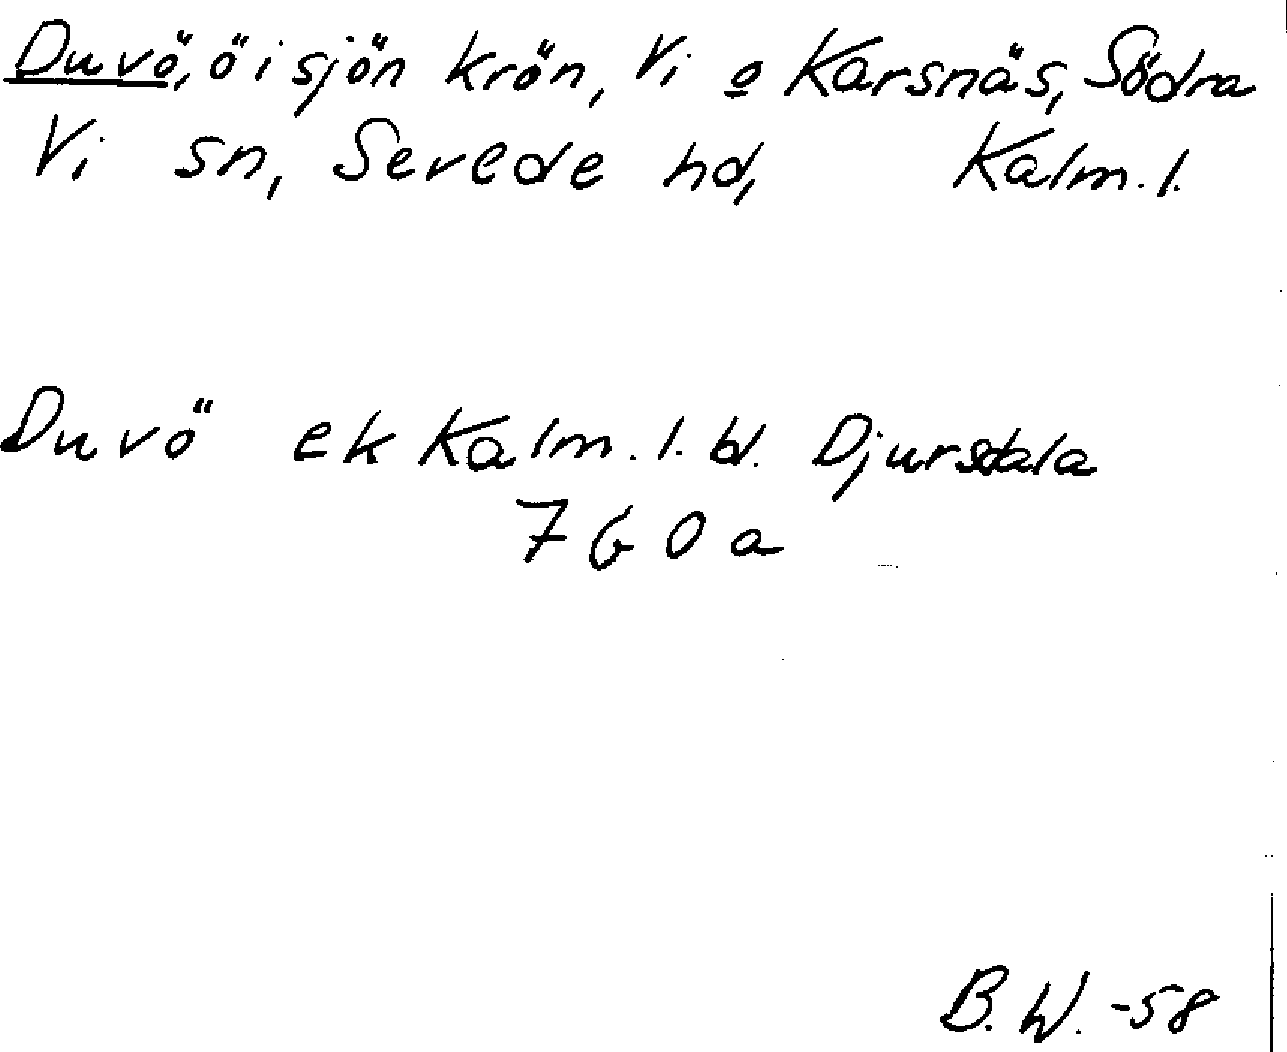 Duvö, ö i sjön krön, Vi o Karsnäs, Södra
Vi sn, Sevede hd, Kalm. l.
Duvö ek Kalm. l. bl. Djursdala
7 G 0 a
B. W. -58